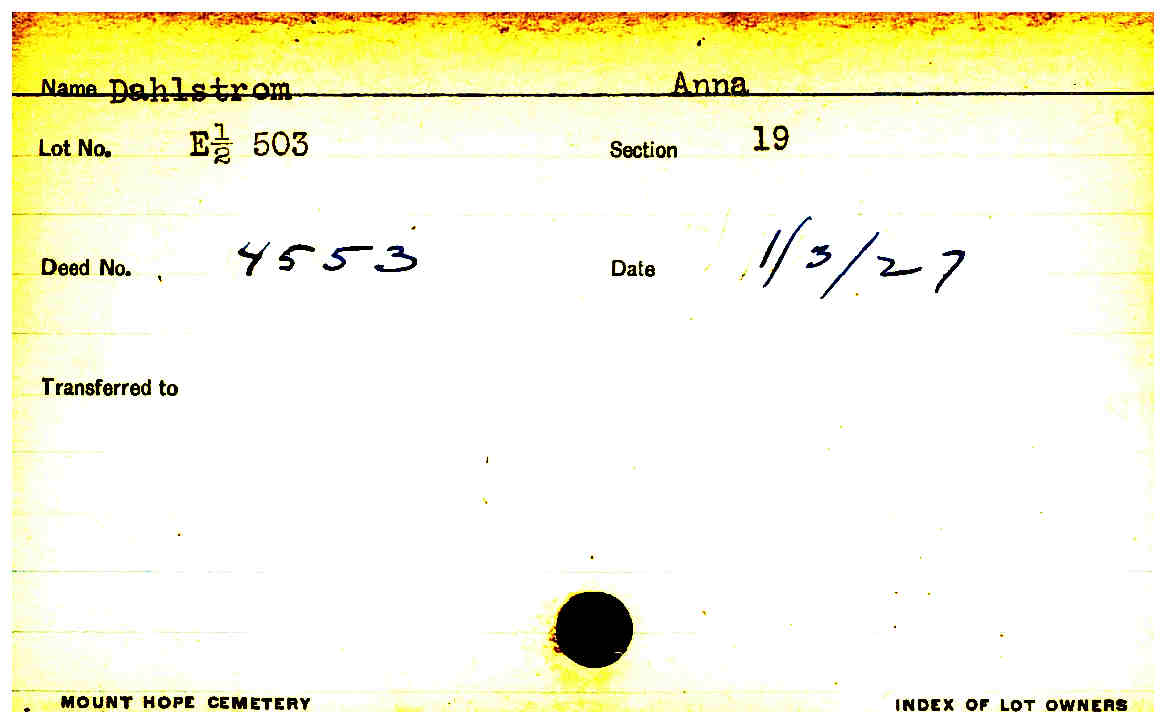 Name Dahlstrom Anna
Lot No. E½ 503 Section 19
Deed No. 4553 Date 1/3/27
Transferred to
MOUNT HOPE CEMETERY INDEX OF LOT OWNERS